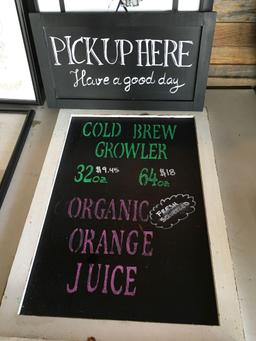 PICK UP HERE
Have a good day
COLD BREW
GROWLER
32 oz $9.45 64 oz $18
ORGANIC
FRESH SQUEEZED
ORANGE
JUICE